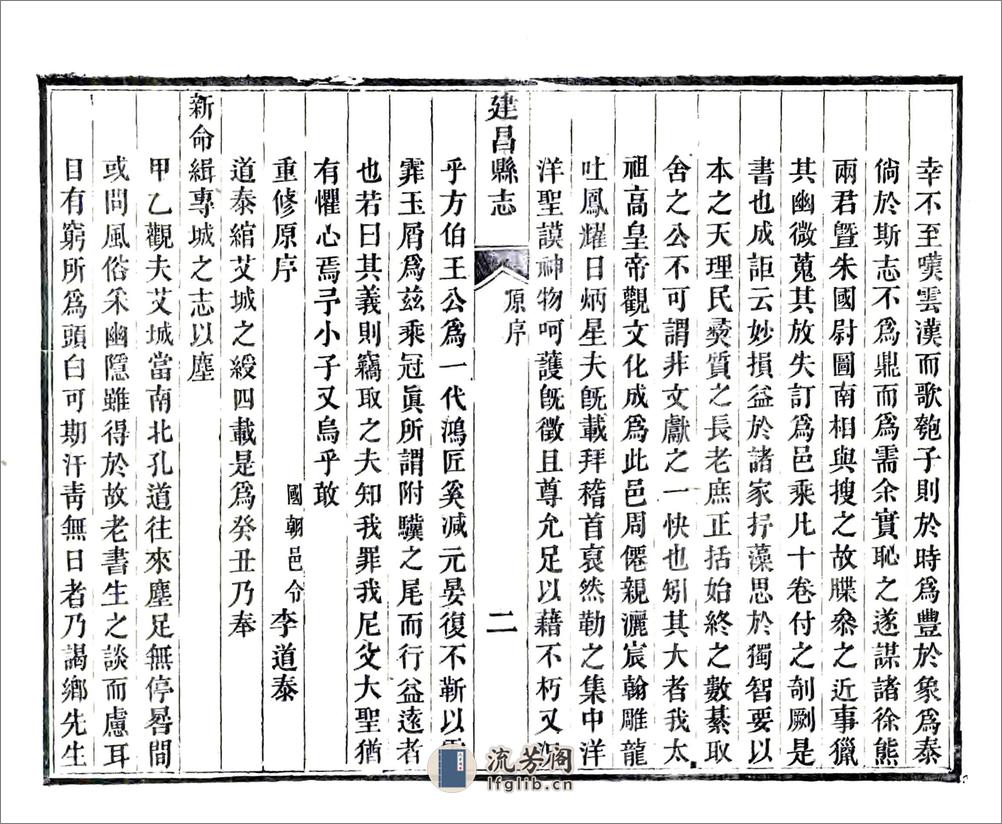 幸不至嘆雲漢而歌匏子則於時爲豐於象爲泰
倘於斯志不爲鼎而爲需余實恥之遂謀諸徐熊
兩君曁朱國尉圖南相與搜之故牒叅之近事獵
其幽微蒐其放失訂爲邑乘凡十卷付之剞劂是
書也成詎云妙損益於諸家抒藻思於獨智要以
本之天理民彜質之長老庶正括始終之數綦取
舍之公不可謂非文獻之一快也矧其大者我太
祖高皇帝觀文化成爲此邑周僊親灑宸翰雕龍
吐鳳耀日炳星夫旣載拜稽首裒然勒之集中洋
洋聖謨神物呵護旣徵且尊允足以藉不朽又
建昌縣志
原序
二
乎方伯王公爲一代鴻匠奚减元晏復不靳以
霏玉屑爲兹乘冠眞所謂附驥之尾而行益遠者
也若曰其義則竊取之夫知我罪我尼父大聖猶
有懼心焉予小子又烏乎敢
重修原序
國朝邑令李道泰
道泰綰艾城之綬四載是爲癸丑乃奉
新命緝專城之志以塵
甲乙觀夫艾城當南北孔道往來塵足無停晷間
或問風俗釆幽隱雖得於故老書生之談而慮耳
目有窮所爲頭白可期汗靑無日者乃謁鄉先生
流芳阁
lfglib.cn